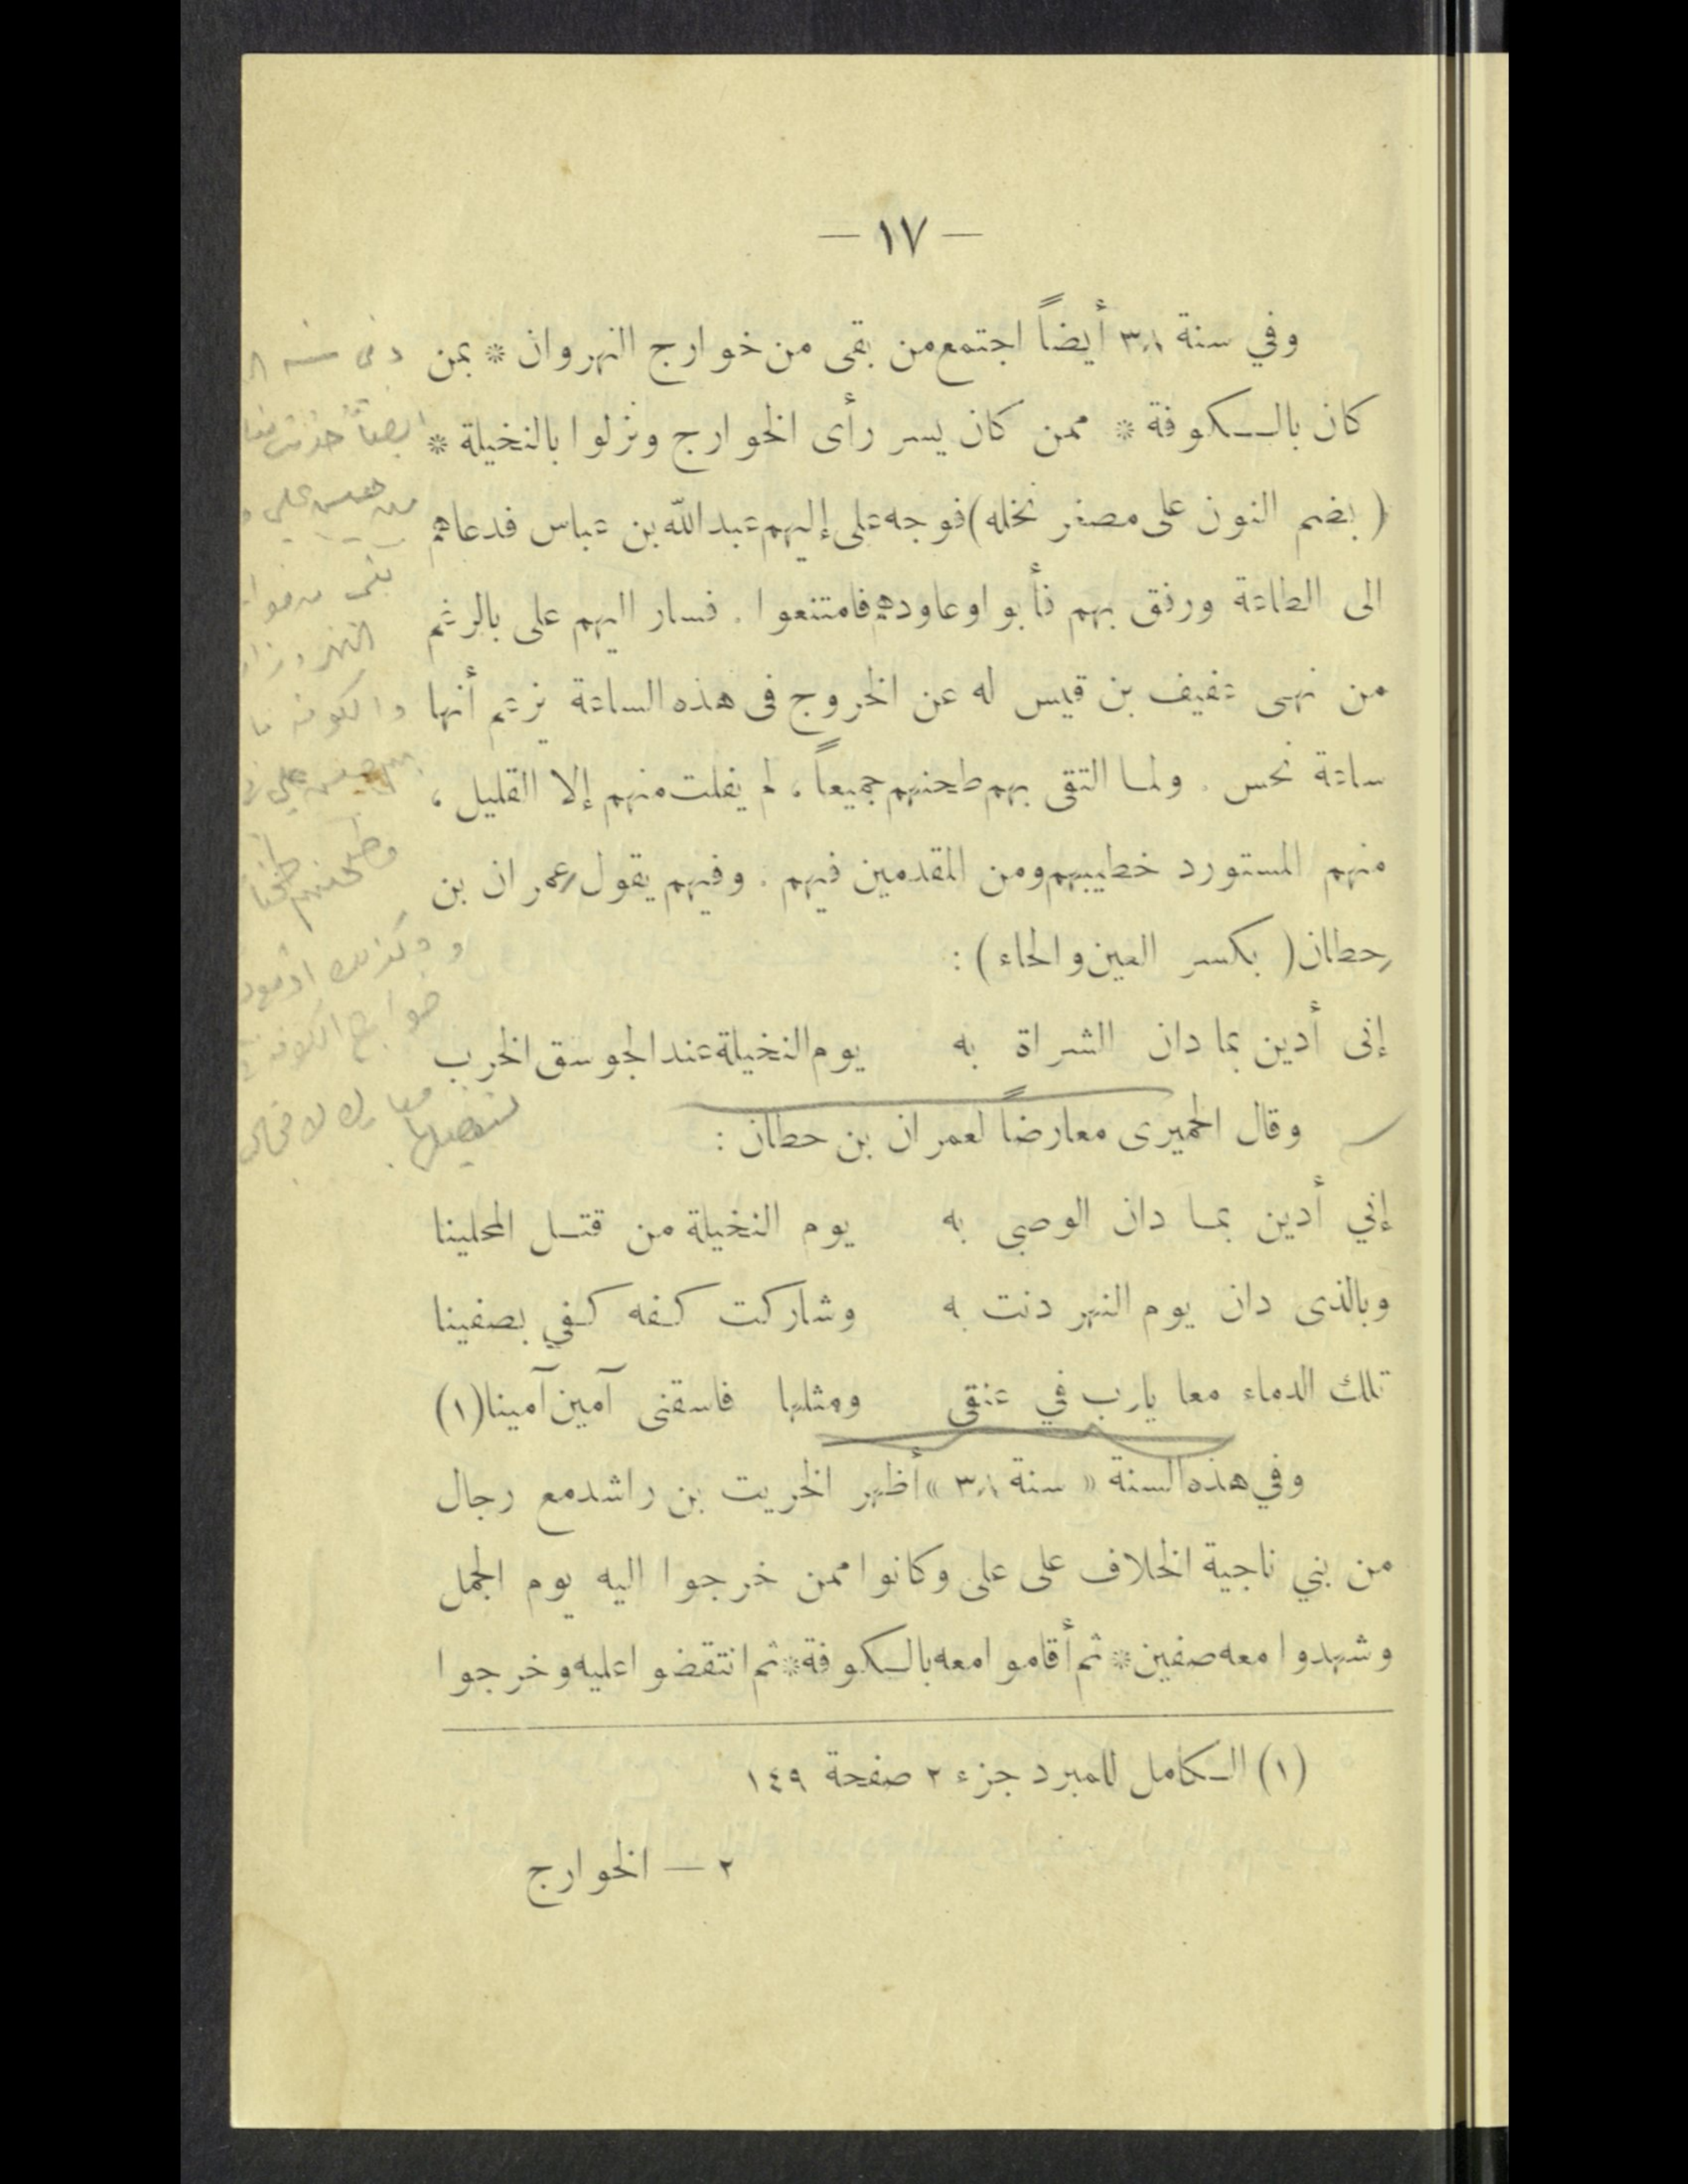 — ١٧ —
وفي سنة ٣٨ أيضاً اجتمع من بقى من خوارج النهروان * بمن
كان بالكوفة * ممن كان يسر رأى الخوارج ونزلوا بالنخيلة *
( بضم النون على مصغر نخله ) فوجه على إليهم عبد الله بن عباس فدعاهم
الى الطاعة ورفق بهم فأبوا وعاودهم فامتنعوا . فسار اليهم على بالرغم
من نهى عفيف بن قيس له عن الخروج فى هذه الساعة يزعم أنها
ساعة نحس . ولما التقى بهم طحنهم جميعاً ، لم يفلت منهم إلا القليل ،
منهم المستورد خطيبهم ومن المقدمين فيهم . وفيهم يقول عمران بن
حطان ( بكسر العين والحاء ) :
إنى أدين بما دان الشراة به يوم النخيلة عند الجوسق الخرب
وقال الحميرى معارضاً لعمران بن حطان :
إني أدين بما دان الوصى به يوم النخيلة من قتل المحلينا
وبالذى دان يوم النهر دنت به وشاركت كفه كفي بصفينا
تلك الدماء معا يارب في عنقى ومثلها فاسقنى آمين آمينا (١)
وفي هذه السنة « سنة ٣٨ » أظهر الخريت بن راشد مع رجال
من بني ناجية الخلاف على على وكانوا ممن خرجوا اليه يوم الجمل
وشهدوا معه صفين * ثم أقاموا معه بالكوفة * ثم انتقضوا عليه وخرجوا
(١) الكامل للمبرد جزء ٢ صفحة ١٤٩
٢ — الخوارج